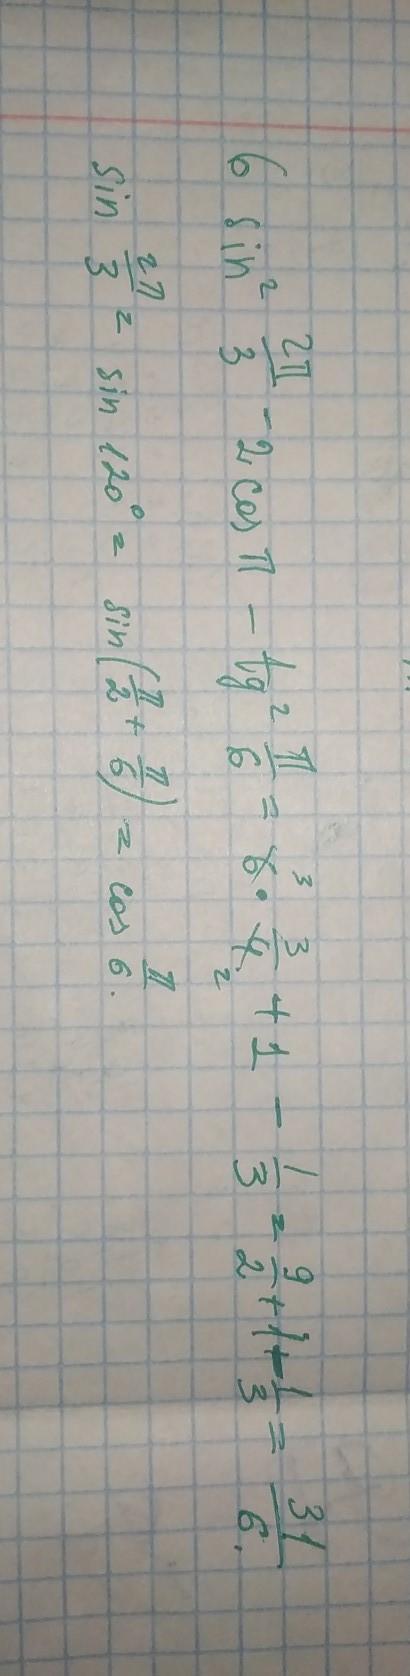 6 sin² 2π/3 - 2cos π - tg² π/6 = 6³ · 3/4₂ + 1 - 1/3 = 9/2 + 1 - 1/3 = 31/6.
sin 2π/3 = sin 120° = sin(π/2 + π/6) = cos π/6.